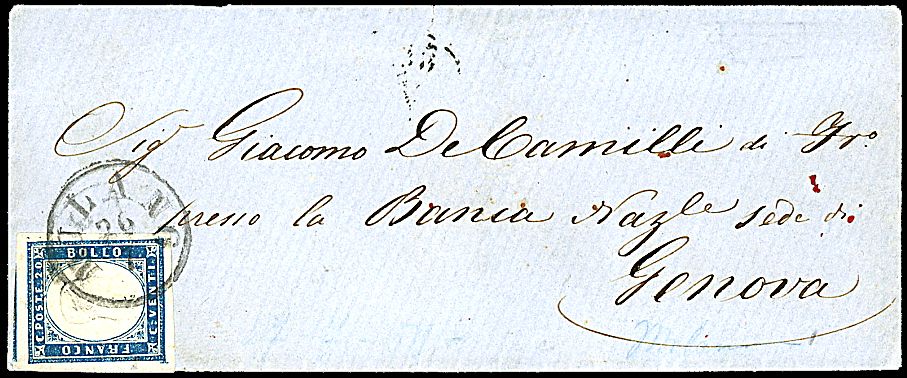 Sigʳ Giacomo DeCamilli di Frº
presso la Banca Nazle sede di
Genova
MILANO
26
BOLLO
C. POSTE 20
C. VENTI
FRANCO